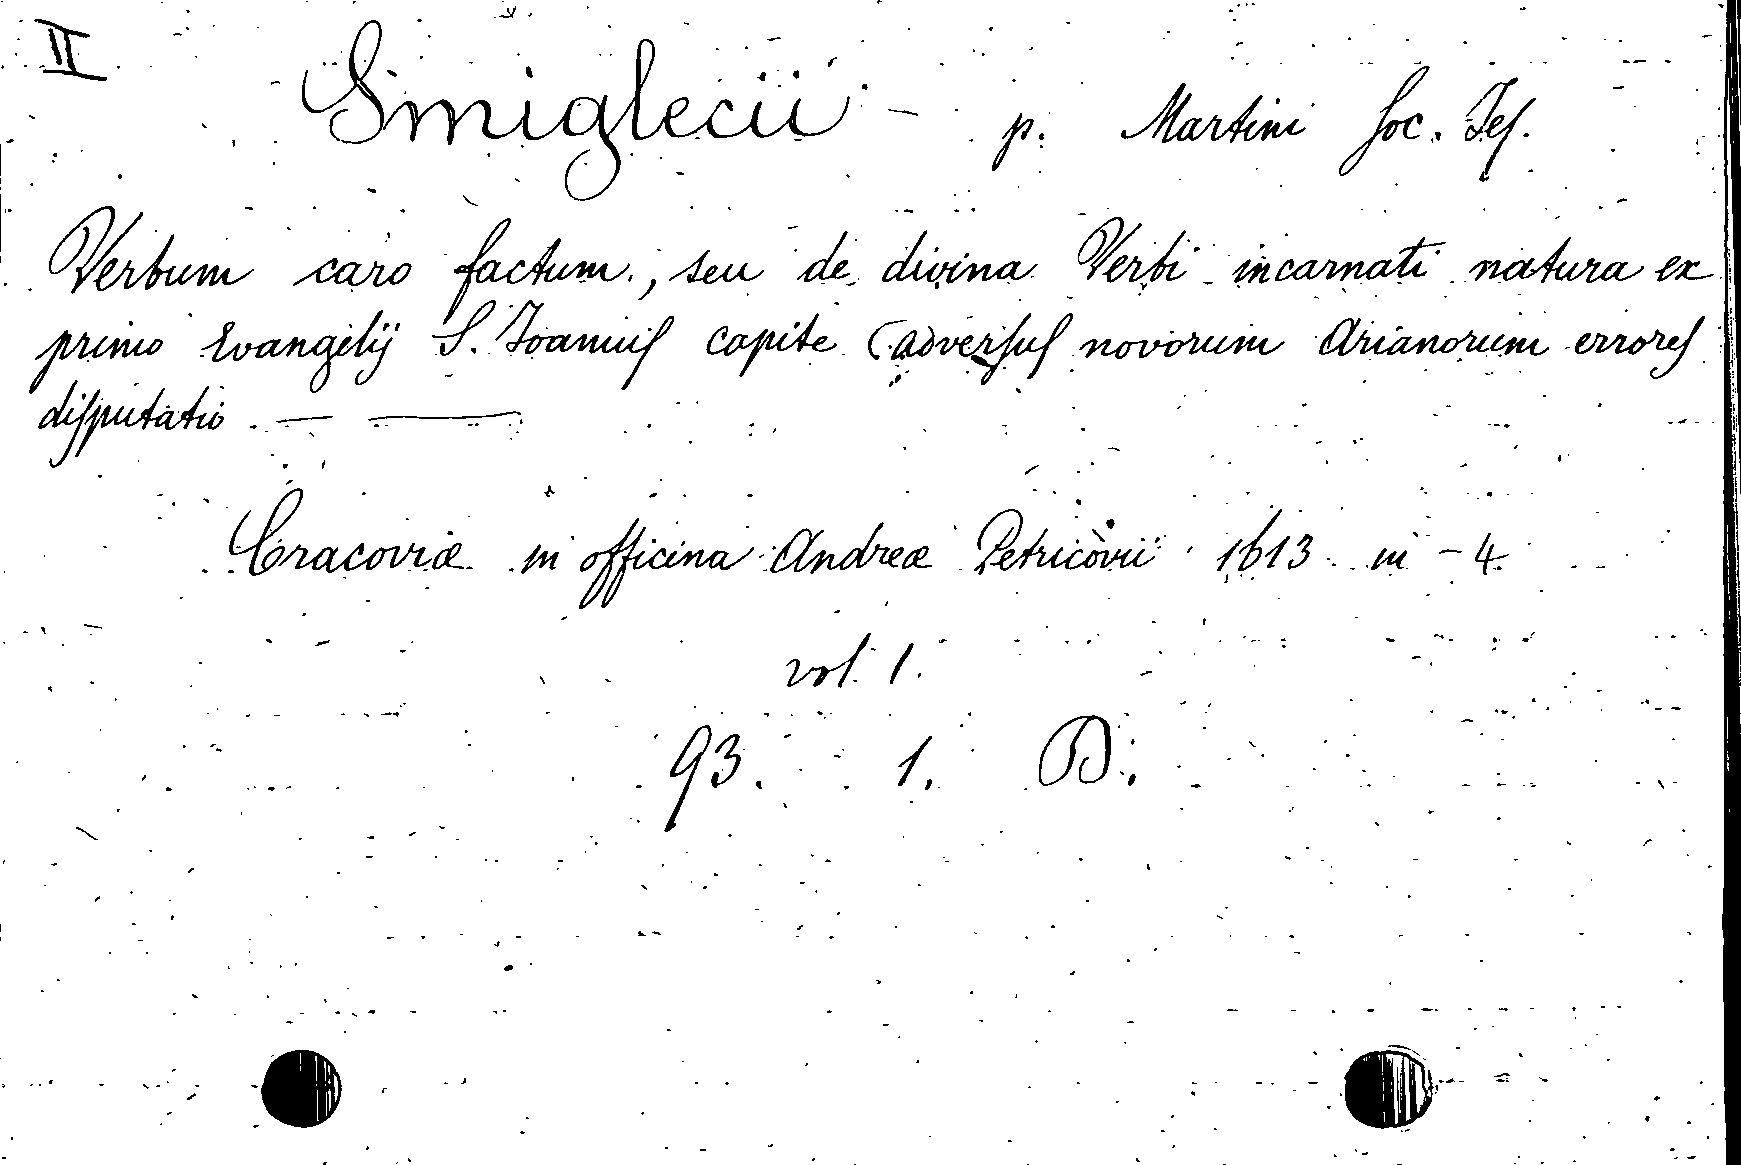 II
Smiglecii - p. Martini Soc. Jes.
Verbum caro factum, seu de divina Verbi incarnati natura ex
primo Evangelij S. Joannis capite (adversus novorum Arianorum errores
disputatio. — —
Cracoviæ in officina Andreæ Petricovii 1613 in - 4
vol. 1.
93. 1. B.